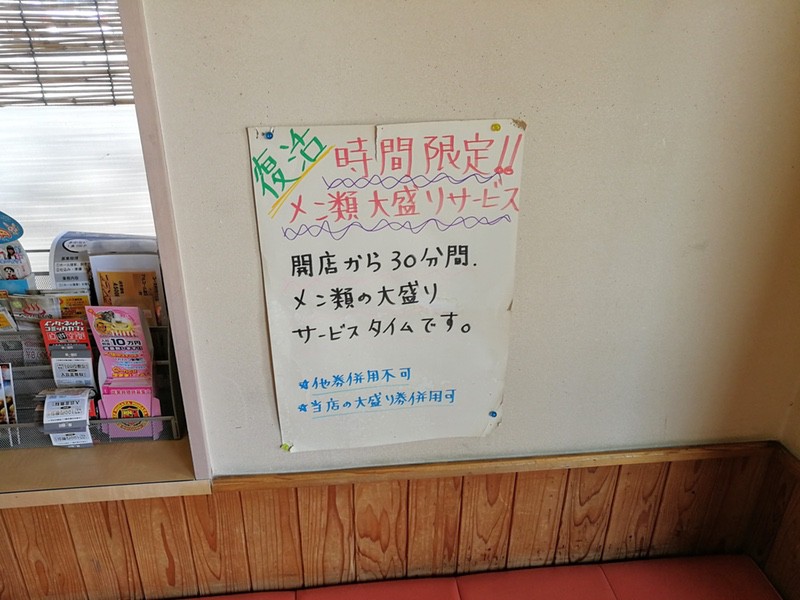 復活
時間限定!!
メン類大盛りサービス
開店から30分間.
メン類の大盛り
サービスタイムです。
☆他券併用不可
☆当店の大盛り券併用可
インターネット
コミックカフェ
10万円